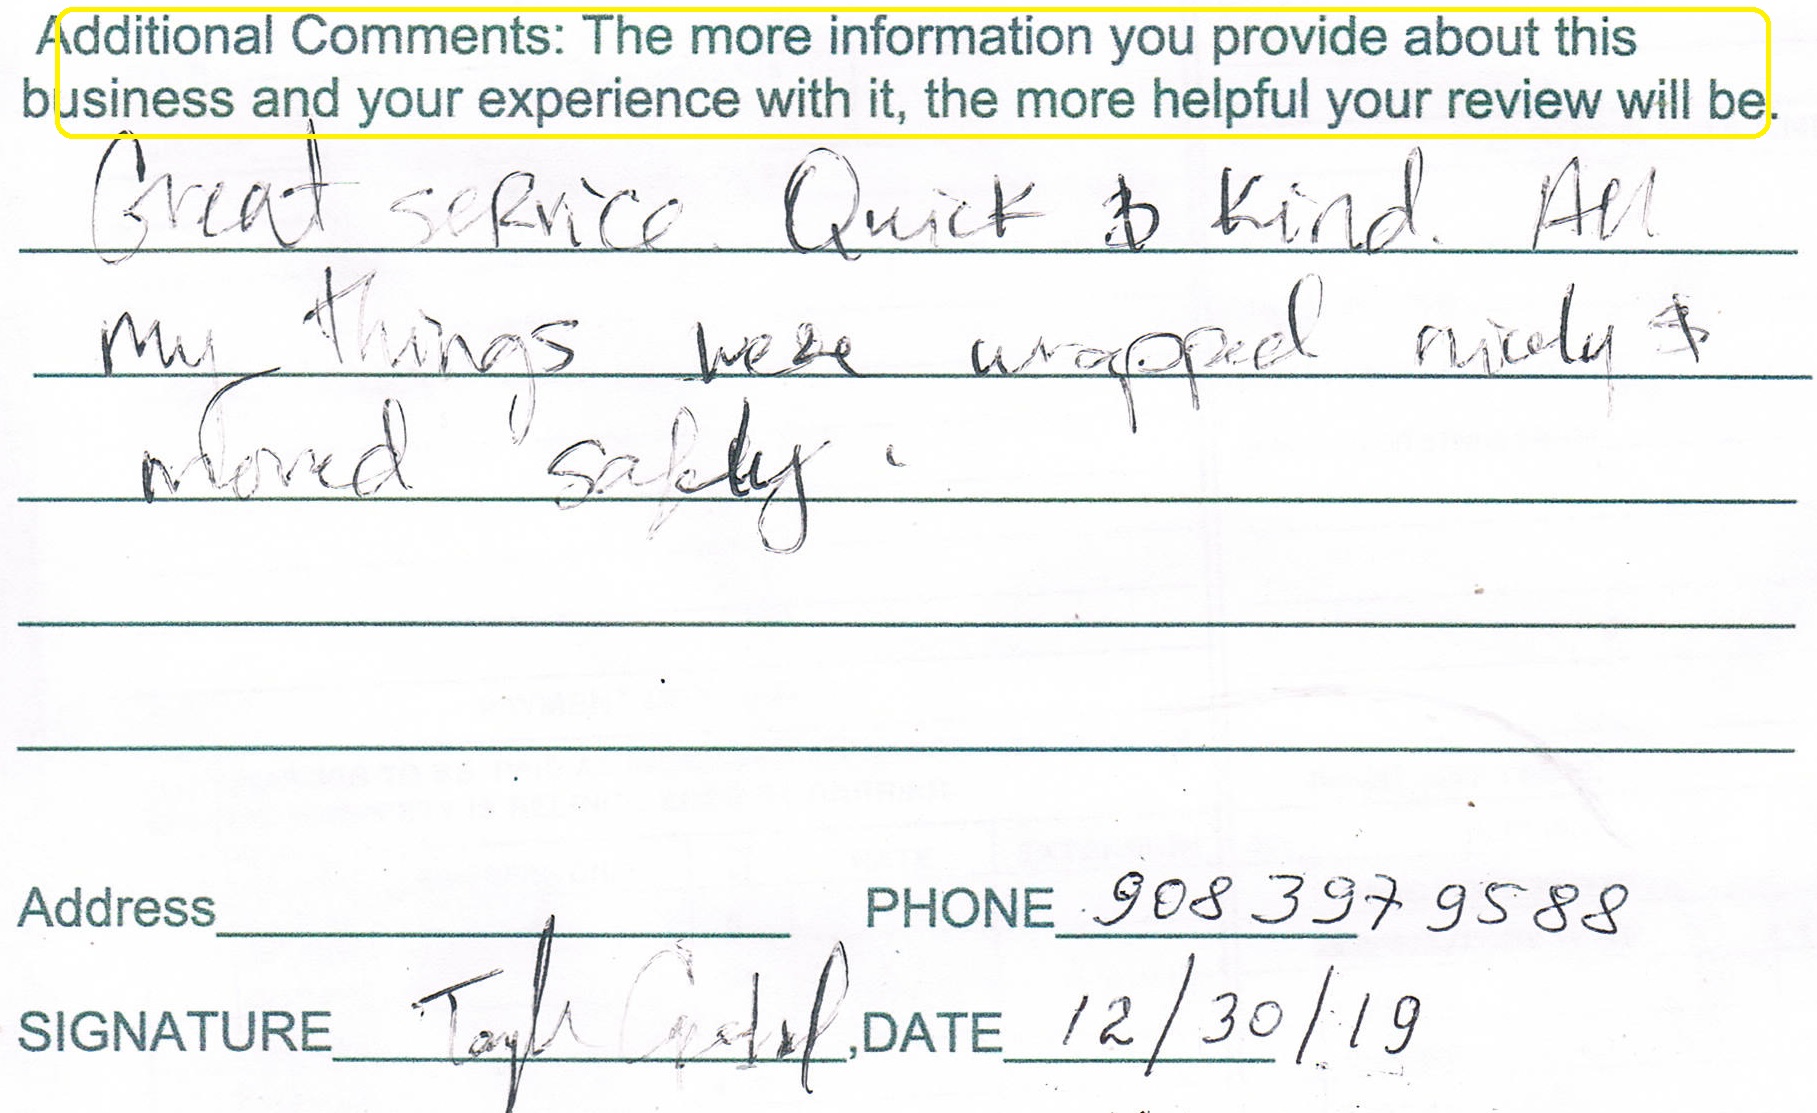 Additional Comments: The more information you provide about this
business and your experience with it, the more helpful your review will be.
Great service. Quick & Kind. All
my things were wrapped nicely &
moved safely.
Address PHONE 908 397 9588
SIGNATURE ,DATE 12/30/19